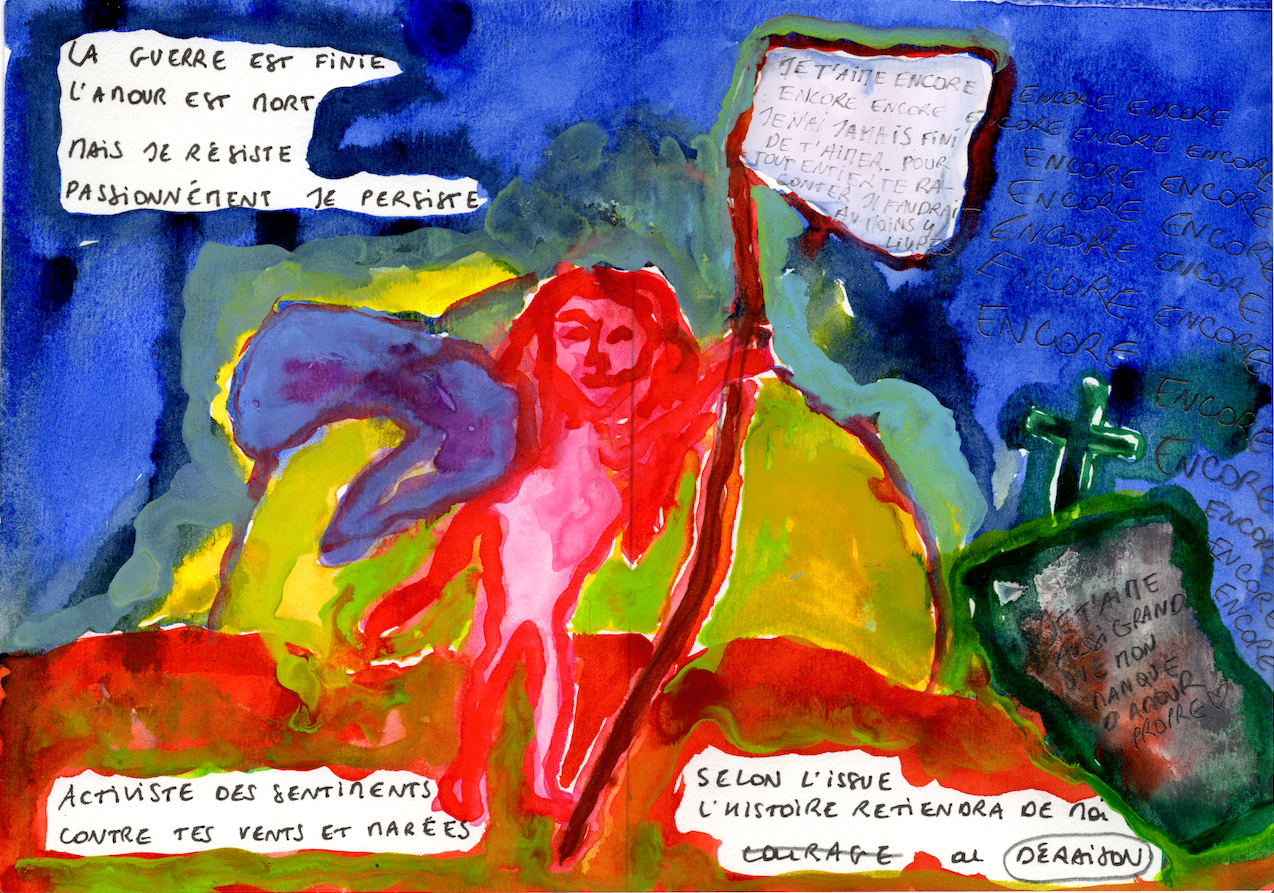 LA GUERRE EST FINIE
L'AMOUR EST MORT
MAIS JE RÉSISTE
PASSIONNÉMENT JE PERSISTE
JE T'AIME ENCORE
ENCORE ENCORE
JE N'AI JAMAIS FINI
DE T'AIMER. POUR
TOUT ENTIER TE RA-
CONTER IL FAUDRAIT
AU MOINS 4
LIVRES
ENCORE ENCORE
ENCORE ENCORE ENCORE
ENCORE ENCORE
ENCORE ENCORE
ENCORE ENCORE
ENCORE ENCORE
ENCORE
ENCORE
ENCORE
ENCORE
ENCORE
ENCORE
JE T'AIME
AUSSI GRAND
QUE MON
MANQUE
D'AMOUR
PROPRE ♡
ACTIVISTE DES SENTIMENTS
CONTRE TES VENTS ET MARÉES
SELON L'ISSUE
L'HISTOIRE RETIENDRA DE MOI
COURAGE OU DÉRAISON